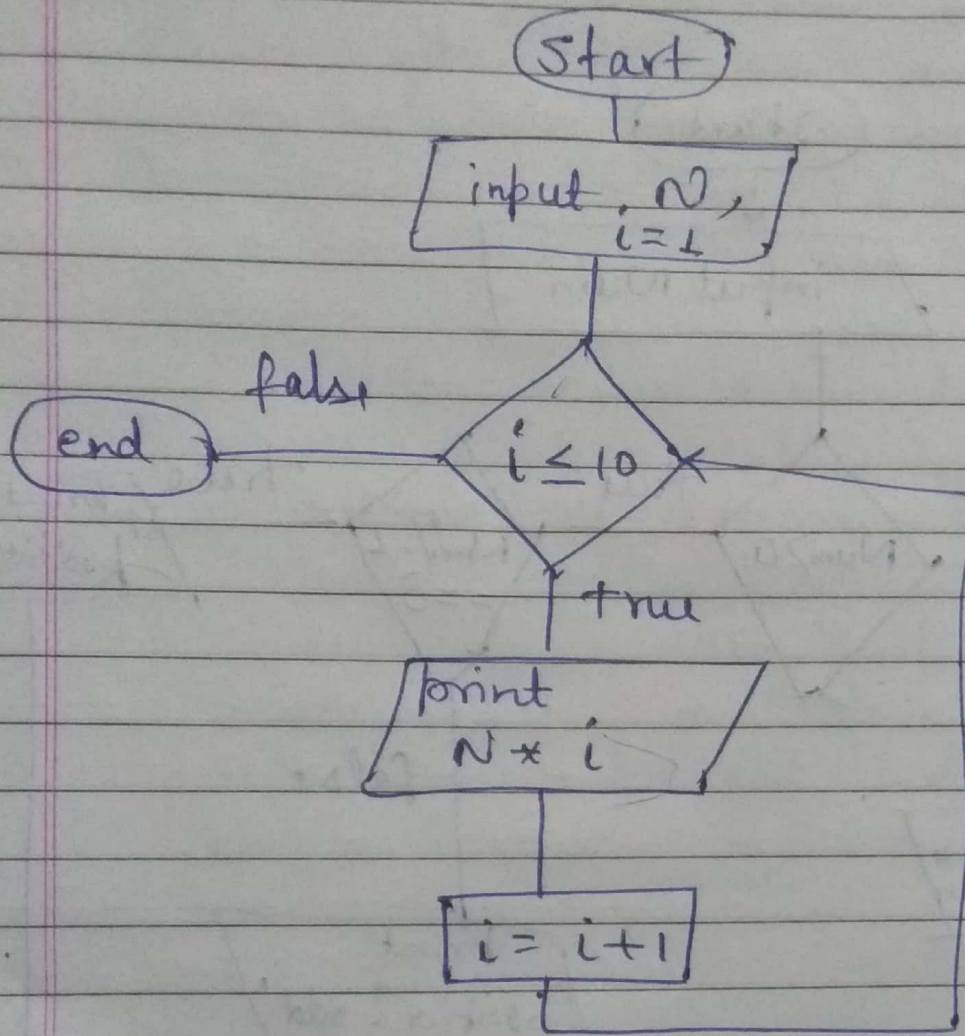 Start
input N,
i=1
false
end
i ≤ 10
true
print
N * i
i = i+1